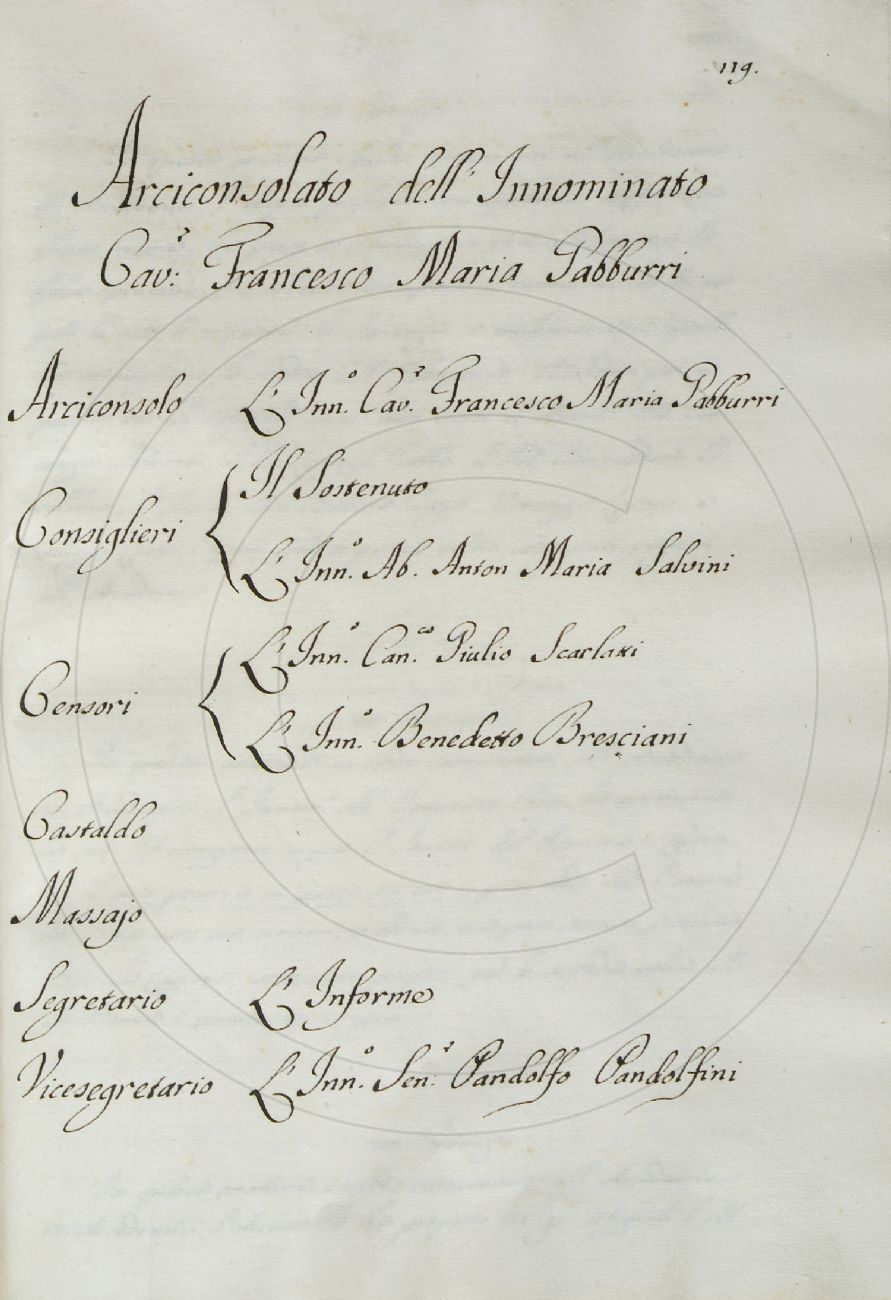 119.
Arciconsolato dell' Innominato
Cav:r Francesco Maria Gabburri
Arciconsolo L' Inn.o Cav.r Francesco Maria Gabburri
Consiglieri Il Sostenuto
L' Inn.o Ab. Anton Maria Salvini
Censori L' Inn.o Can.co Giulio Scarlatti
L' Inn.o Benedetto Bresciani
Castaldo
Massajo
Segretario L' Informe
Vicesegretario L' Inn.o Sen:r Pandolfo Pandolfini